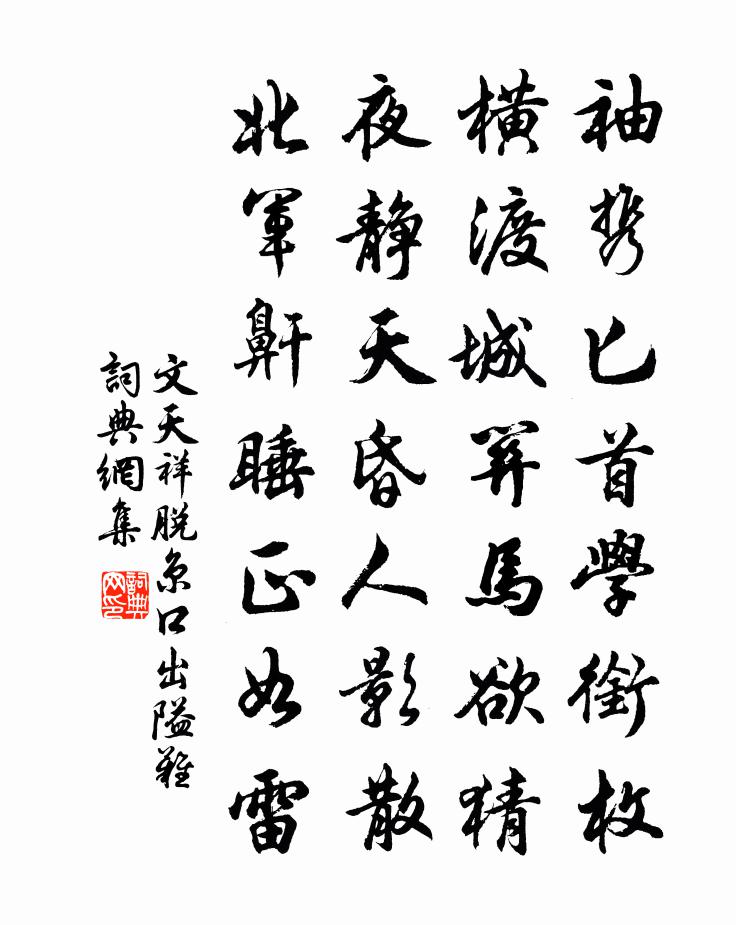 袖携匕首學銜枚
橫渡城關馬欲猜
夜静天昏人影散
北軍鼾睡正如雷
文天祥脱京口出隘難
詞典網集
詞典网印